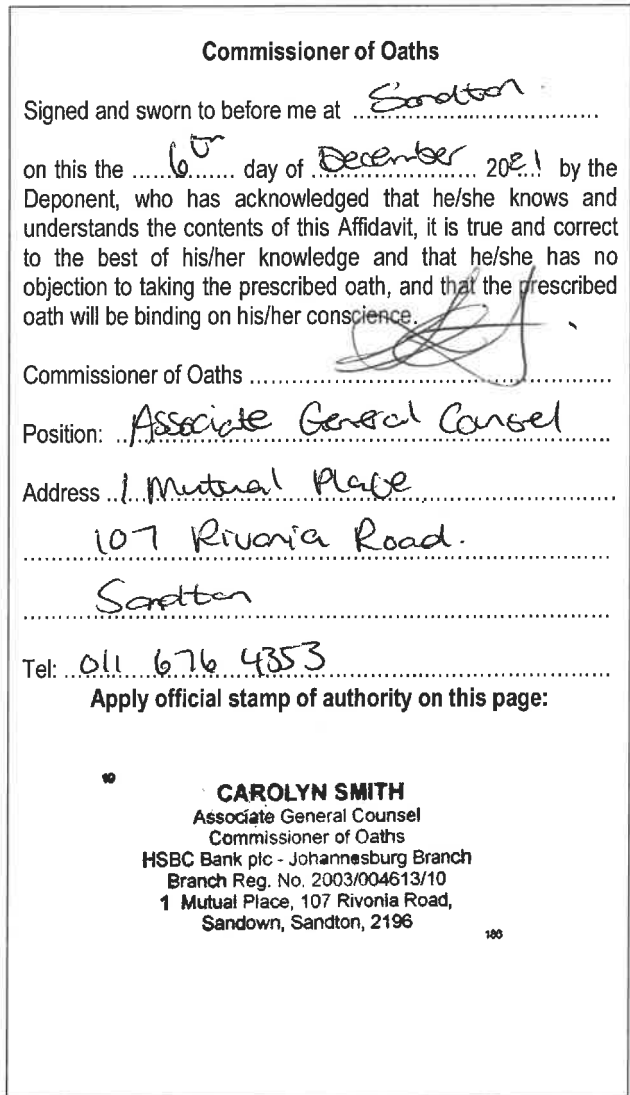 Commissioner of Oaths
Signed and sworn to before me at Sandton
on this the 6th day of December 2021 by the
Deponent, who has acknowledged that he/she knows and
understands the contents of this Affidavit, it is true and correct
to the best of his/her knowledge and that he/she has no
objection to taking the prescribed oath, and that the prescribed
oath will be binding on his/her conscience.
Commissioner of Oaths
Position: Associate General Counsel
Address 1 Mutual Place
107 Rivonia Road.
Sandton
Tel: 011 676 4353
Apply official stamp of authority on this page:
CAROLYN SMITH
Associate General Counsel
Commissioner of Oaths
HSBC Bank plc - Johannesburg Branch
Branch Reg. No. 2003/004613/10
1 Mutual Place, 107 Rivonia Road,
Sandown, Sandton, 2196